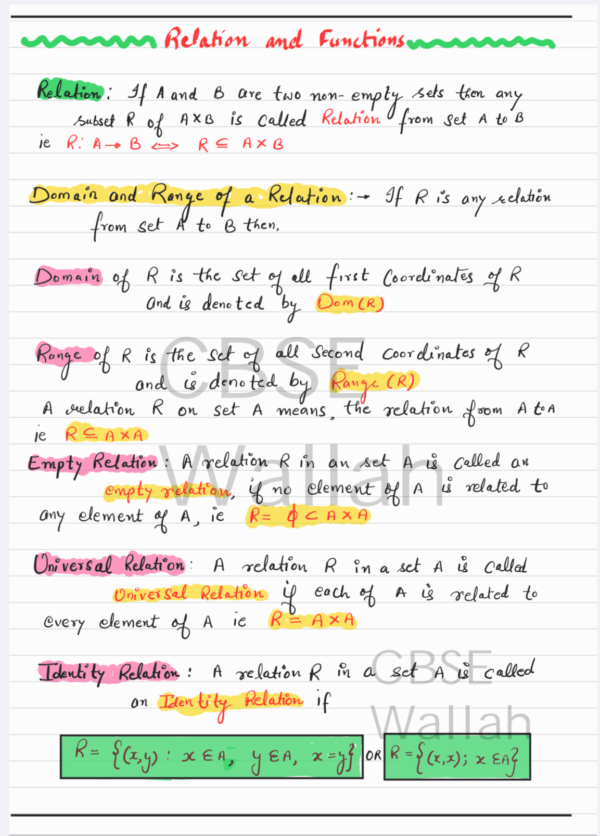 Relation and Functions
Relation: If A and B are two non-empty sets then any
subset R of A×B is called Relation from set A to B
ie R: A→B ⟺ R ⊆ A×B
Domain and Range of a Relation :→ If R is any relation
from set A to B then,
Domain of R is the set of all first coordinates of R
and is denoted by Dom(R)
Range of R is the set of all second coordinates of R
and is denoted by Range (R)
A relation R on set A means, the relation from A to A
ie R ⊆ A×A
Empty Relation : A relation R in an set A is called an
empty relation, if no element of A is related to
any element of A, ie R = ϕ ⊂ A×A
Universal Relation : A relation R in a set A is called
Universal Relation if each of A is related to
every element of A ie R = A×A
Identity Relation : A relation R in a set A is called
an Identity Relation if
R = {(x,y) : x ∈ A, y ∈ A, x = y} OR R = {(x,x); x ∈ A}
CBSE
Wallah
CBSE
Wallah